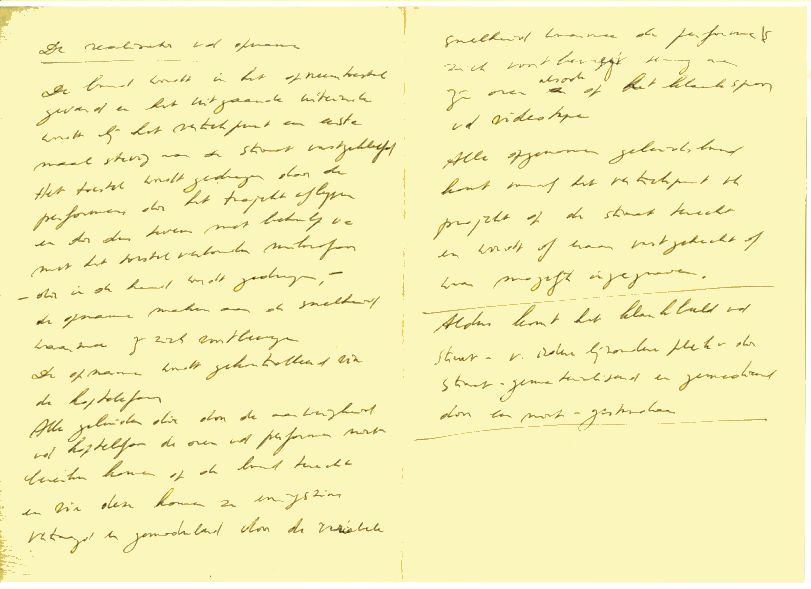 De realisatie vd opname
De band wordt in het opneemtoestel
gevoerd en het uitgaande uiteinde
wordt bij het vertrekpunt een eerste
maal stevig aan de straat vastgekleefd
Het toestel wordt gedragen door de
performers die het trajekt afleggen
en die dan tevens met behulp ve
met het toestel verbonden mikrofoon
- die in de hand wordt gedragen, -
de opname maken aan de snelheid
waarmee zij zich voortbewegen
De opname wordt gekontroleerd via
de koptelefoon
Alle geluiden die door de aanwezigheid
vd koptelefoon de oren vd performer niet
bereiken komen op de band terecht
en via deze komen ze enigszins
vertraagd en gemoduleerd door de variabele
snelheid waarmee de performers
zich voortbewegen terug aan
zijn oren alsook op het klankspoor
vd videotape
Alle opgenomen geluidsband
komt vanaf het vertrekpunt vh
projekt op de straat terecht
en wordt of eraan vastgehecht of
waar mogelijk ingegraven.
Aldus komt het klankbeeld vd
straat - v. iedere bijzondere plek v die
straat - gematerialiseerd en gemedieerd
door en niet - gesproken